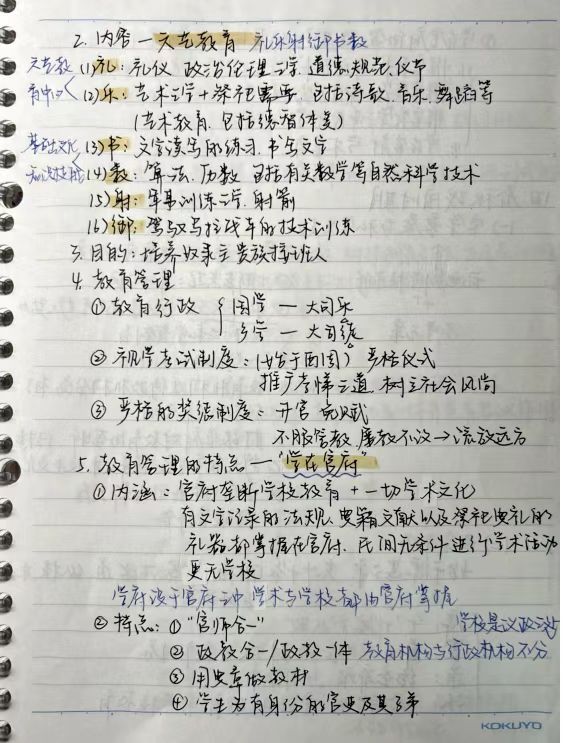 2. 内容 — 六艺教育 礼乐射御书数
六艺教育中心
(1) 礼: 礼仪 政治伦理之学、道德规范、仪节
(2) 乐: 艺术之学+祭祀需要 包括诗歌、音乐、舞蹈等
(艺术教育、包括德智体美)
基础文化知识技能
(3) 书: 文字读写的练习、书写文字
(4) 数: 算法、历数 包括有关数学等自然科学技术
(5) 射: 军事训练之学、射箭
(6) 御: 驾驭马拉战车的技术训练
3. 目的: 培养奴隶主贵族接班人
4. 教育管理
① 教育行政 { 国学 — 大司乐
乡学 — 大司徒
② 视学考试制度: (始于西周) 严格仪式
推广孝悌之道、树立社会风尚
③ 严格的奖惩制度: 升官
不服管教、屡教不改→流放远方
5. 教育管理的特点 — "学在官府"
① 内涵: 官府垄断学校教育 + 一切学术文化
有文字记录的法规、典籍文献以及祭祀典礼的
礼器都掌握在官府、民间无条件进行学术活动
更无学校
学府设于官府之中 学术与学校都由官府掌握
② 特点: ① "官师合一" 学校是议政之
② 政教合一/政教一体 教育机构与行政机构不分
③ 用史章做教材
④ 学生为有身份的官吏及其子弟
KOKUYO